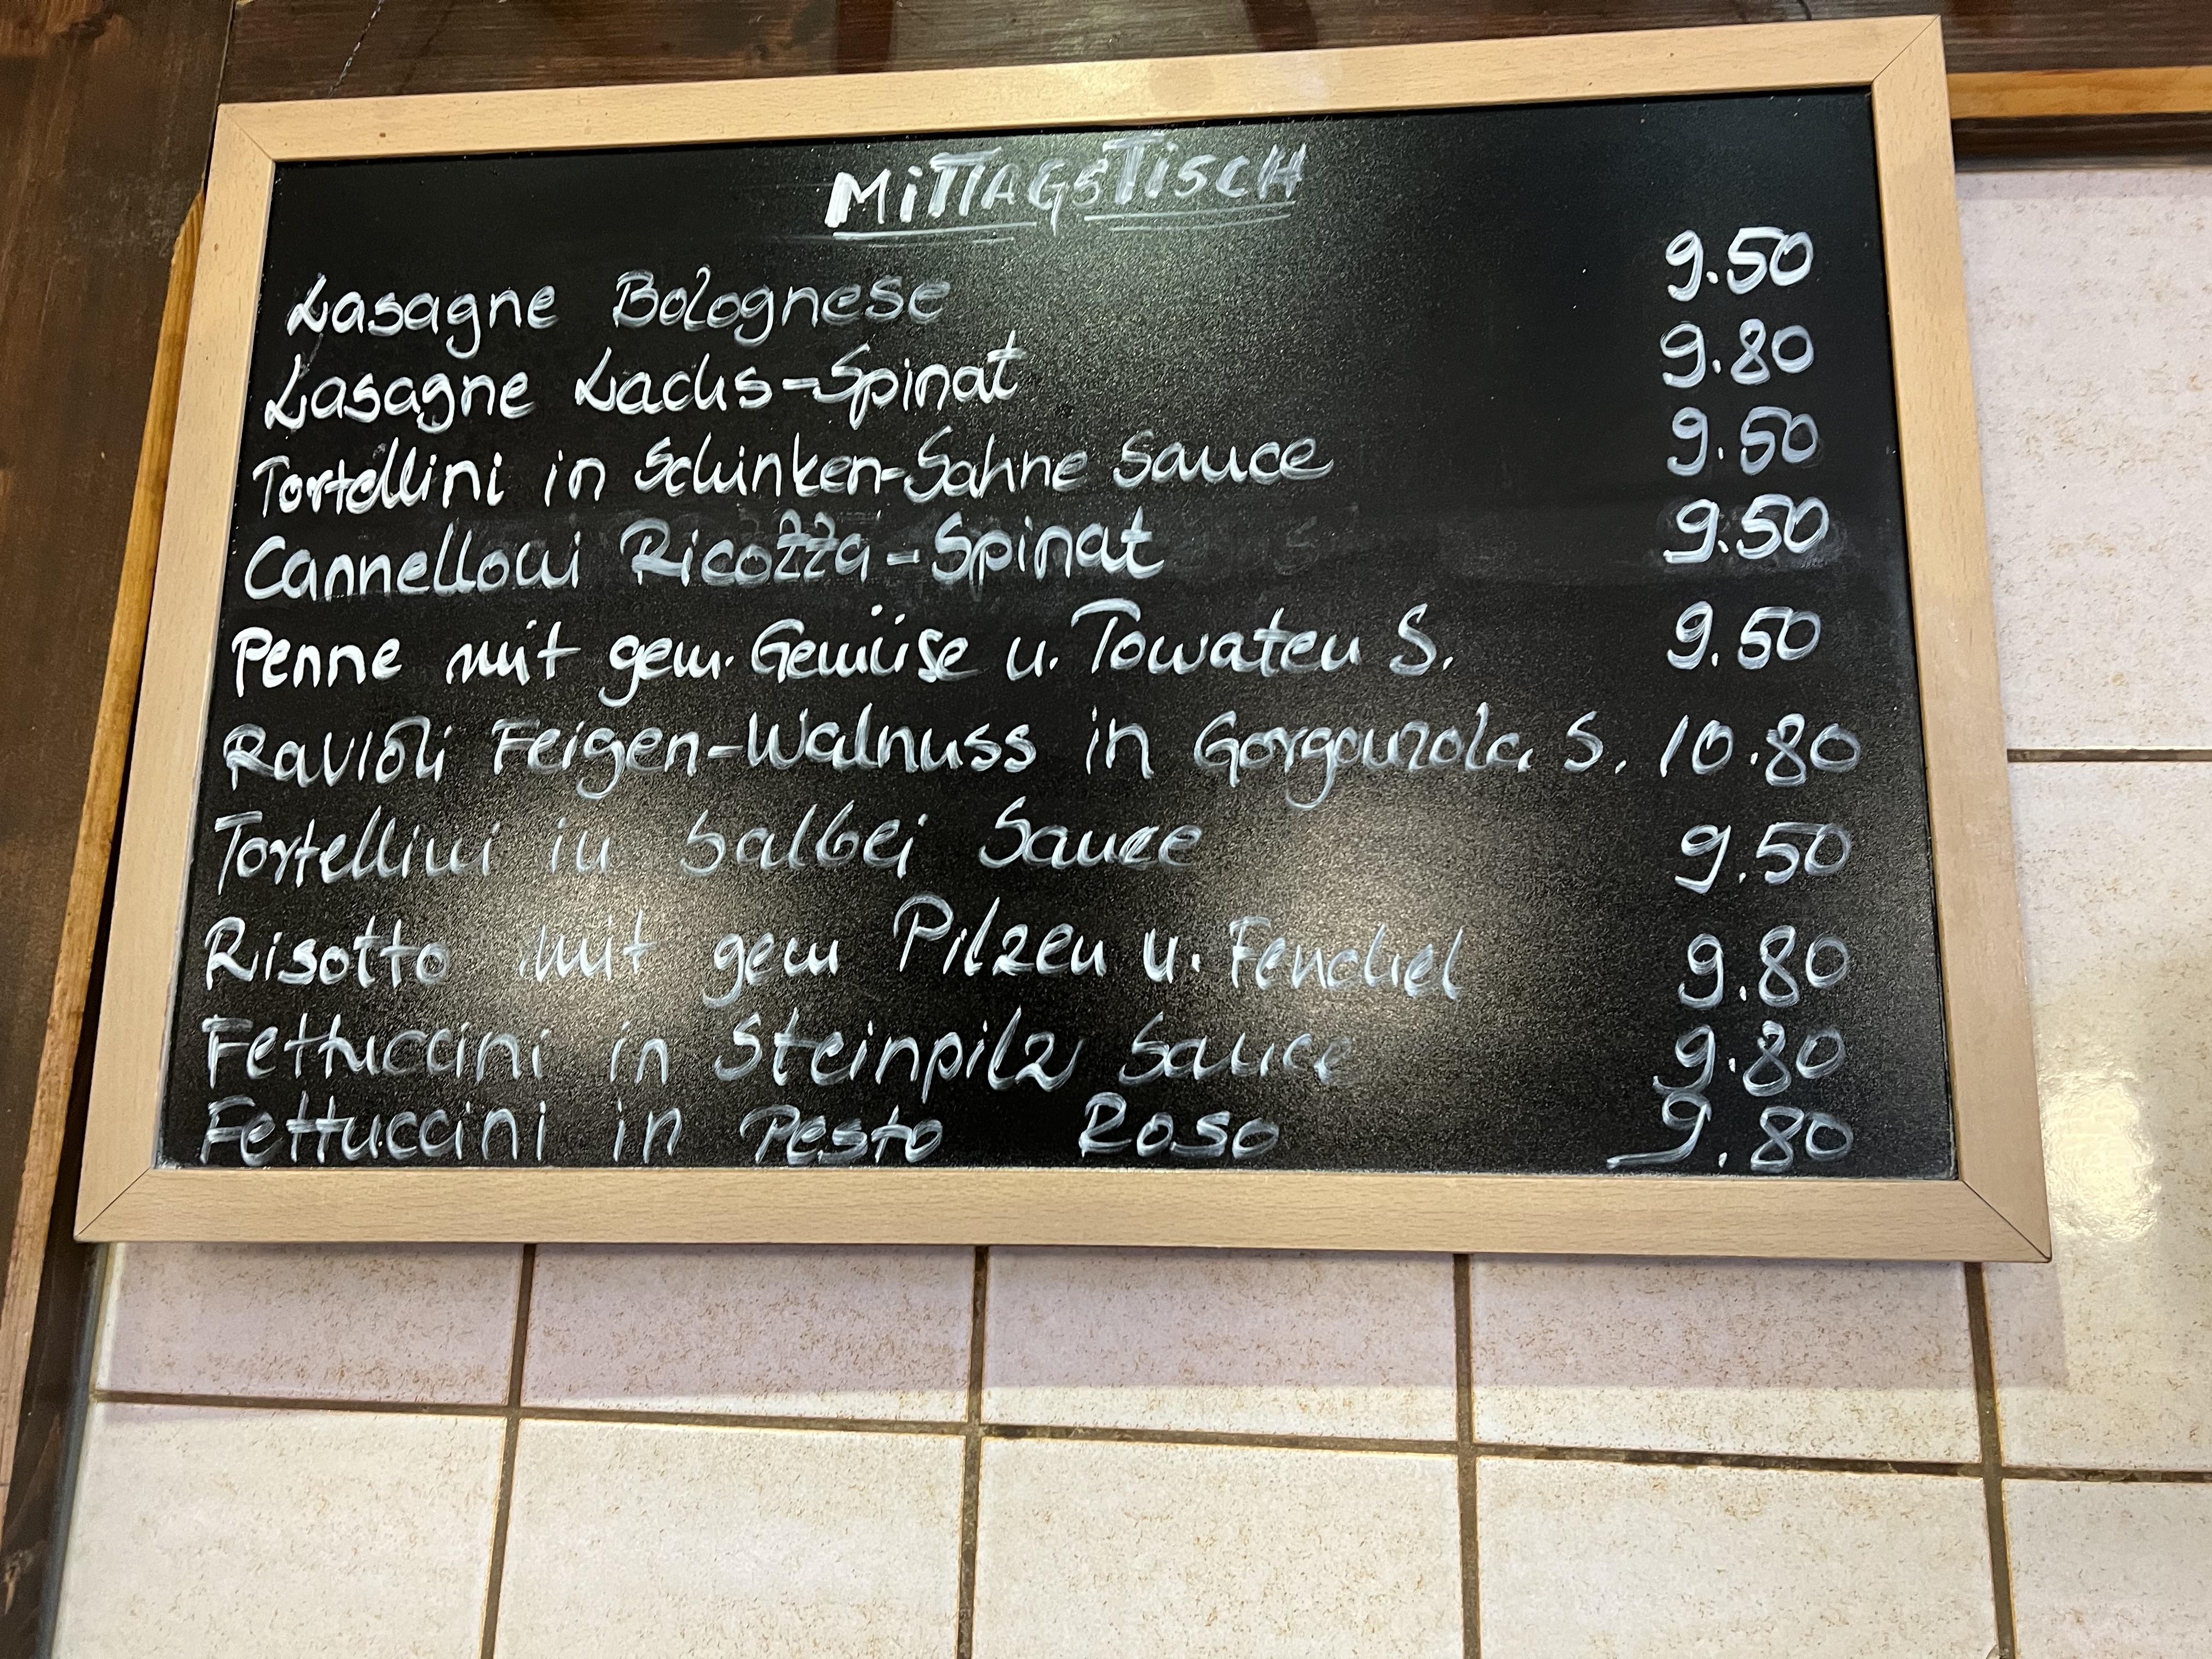 MITTAGSTISCH
Lasagne Bolognese 9.50
Lasagne Lachs-Spinat 9.80
Tortellini in Schinken-Sahne Sauce 9.50
Cannelloni Ricozza-Spinat 9.50
Penne mit gem. Gemüse u. Tomaten S. 9.50
Ravioli Feigen-Walnuss in Gorgonzola S. 10.80
Tortellini in Salbei Sauce 9.50
Risotto mit gem Pilzen u. Fenchel 9.80
Fettuccini in Steinpilz Sauce 9.80
Fettuccini in Pesto Roso 9.80